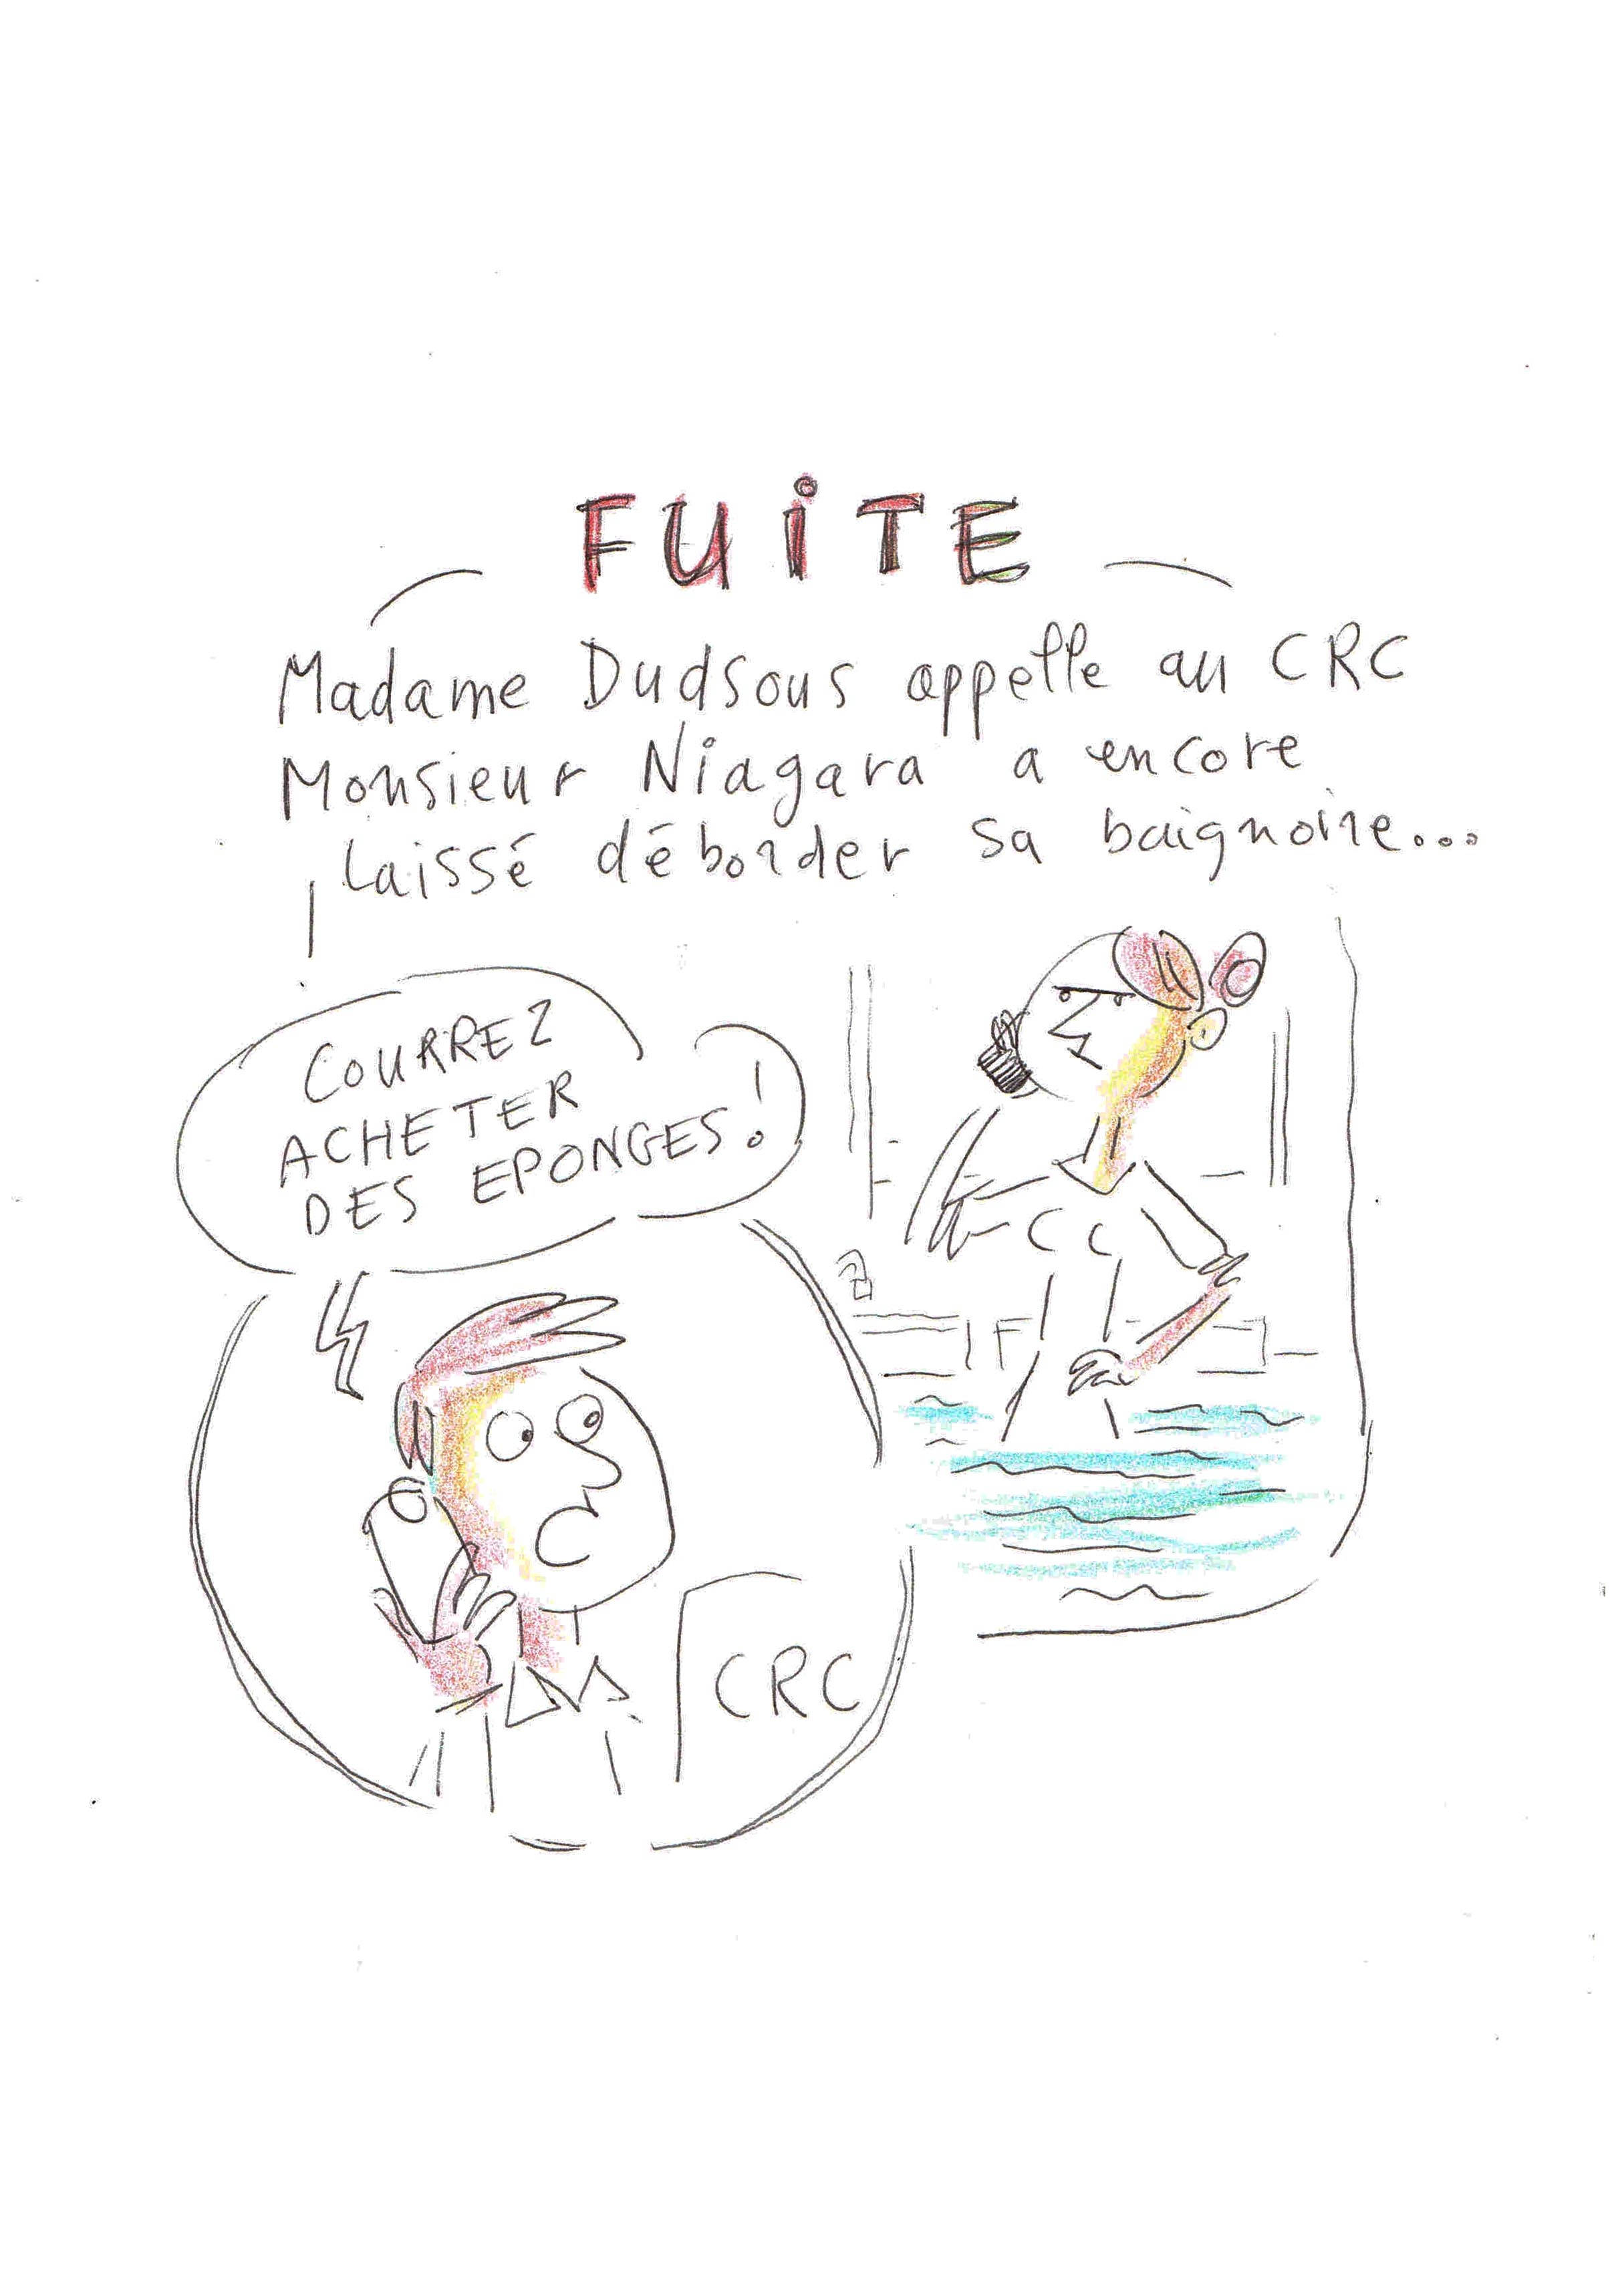 FUiTE
Madame Dudsous appelle au CRC
Monsieur Niagara a encore
laissé déborder sa baignoire...
COURREZ
ACHETER
DES EPONGES!
CRC